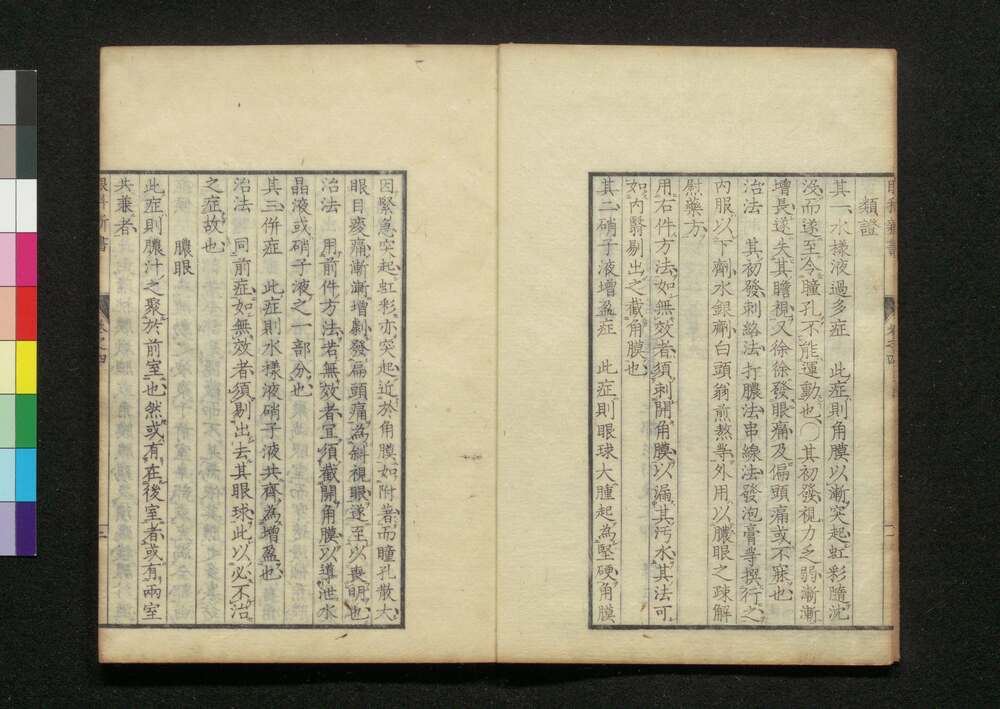 類證
其一水樣液過多症　此症則角膜以漸突起虹彩隨沈
沒而遂至令瞳孔不能運動也〇其初發視力乏弱漸漸
增長遂失其瞻視又徐徐發眼痛及偏頭痛或不寐也
治法　其初發刺絡法打膿法串線法發泡膏等撰行之
內服以下劑水銀劑白頭翁煎熬等外用以膿眼之疎解
慰藥方
用右件方法如無效者須刺開角膜以漏其汚水其法可
如內翳剔出之截角膜也
其二硝子液增盈症　此症則眼球大腫起為堅硬角膜
因緊急突起虹彩亦突起近於角膜如附著而瞳孔散大
眼目疼痛漸漸增劇發偏頭痛為斜視眼遂至以喪明也
治法　用前件方法若無效者宜須截開角膜以導泄水
晶液或硝子液之一部分也
其三併症　此症則水樣液硝子液共齊為增盈也
治法　同前症如無效者須剔出去其眼球此以必不治
之症故也
膿眼
此症則膿汁之聚於前室也然或有在後室者或有兩室
共兼者
眼科新書
卷之四
二